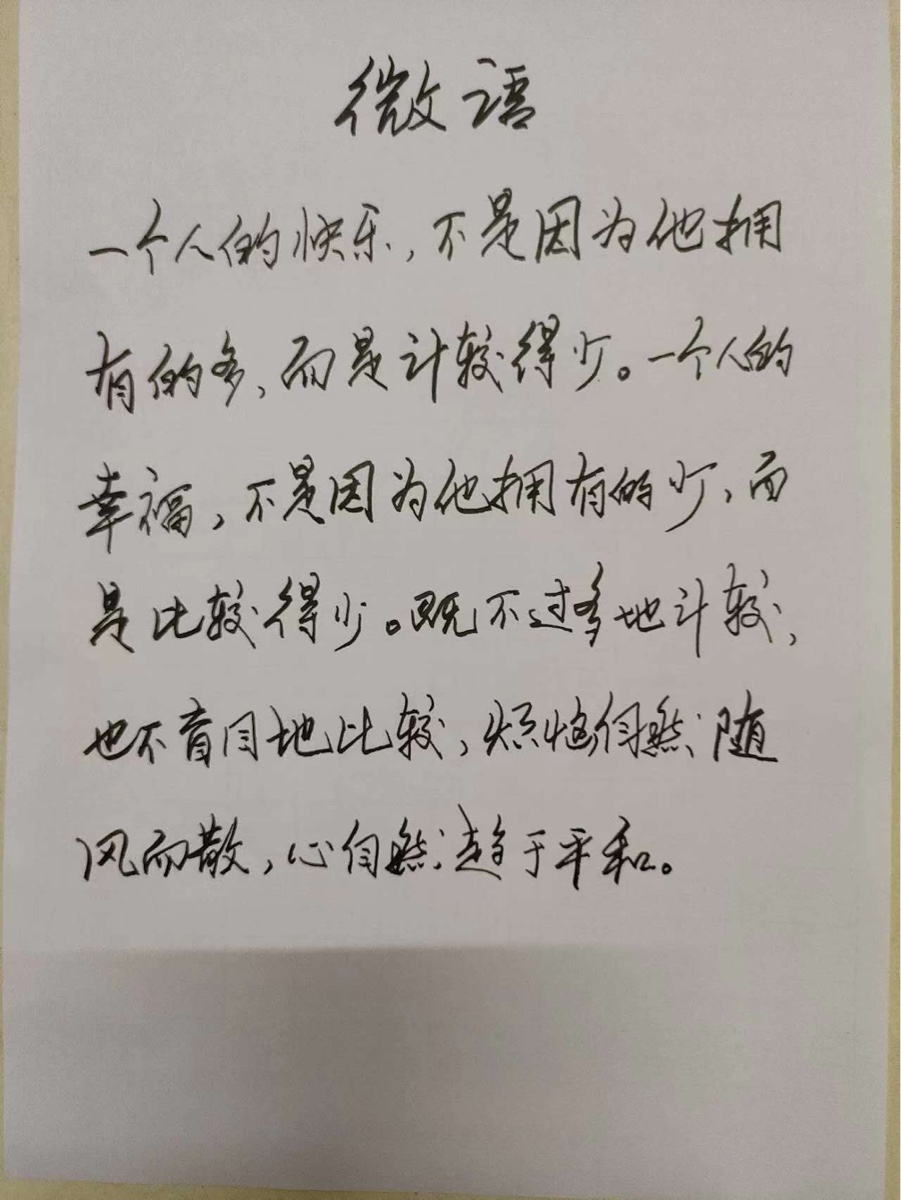 微语
一个人的快乐，不是因为他拥
有的多，而是计较得少。一个人的
幸福，不是因为他拥有的少，而
是比较得少。既不过多地计较，
也不盲目地比较，烦恼自然随
风而散，心自然趋于平和。